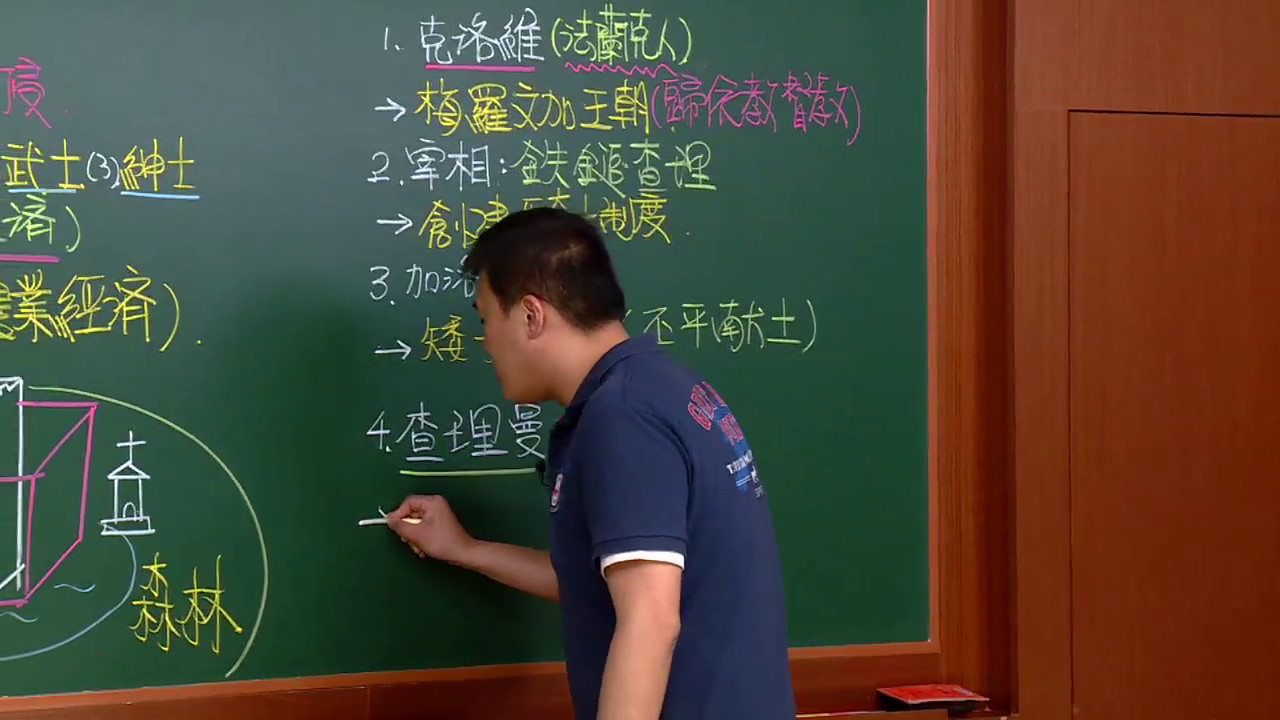 度
武士(3)紳士
濟)
農業經濟).
森林
1. 克洛維(法蘭克人)
→梅羅文加王朝(歸依教督教)
2. 宰相:鉄鎚查理
→創建 士制度.
3. 加洛
→矮 丕平獻土)
4. 查理曼
→